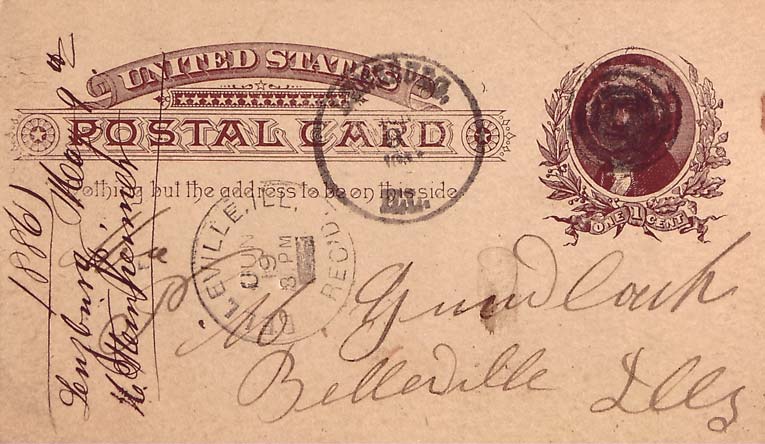 UNITED STATES
POSTAL CARD
Nothing but the address to be on this side
ONE 1 CENT
ILL.
BELLEVILLE, ILL.
JUN
19
8 PM
REC'D.
M. Gundlach
Belleville Ills
1886
Lenzburg